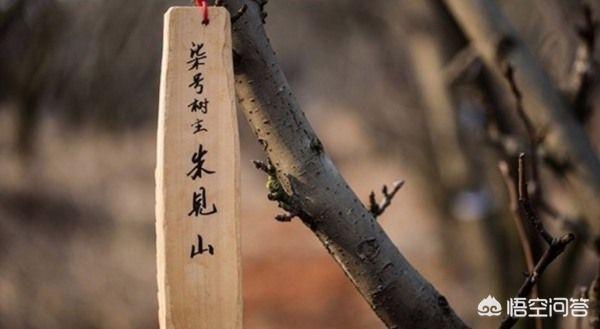 柒号树主
朱见山
悟空问答